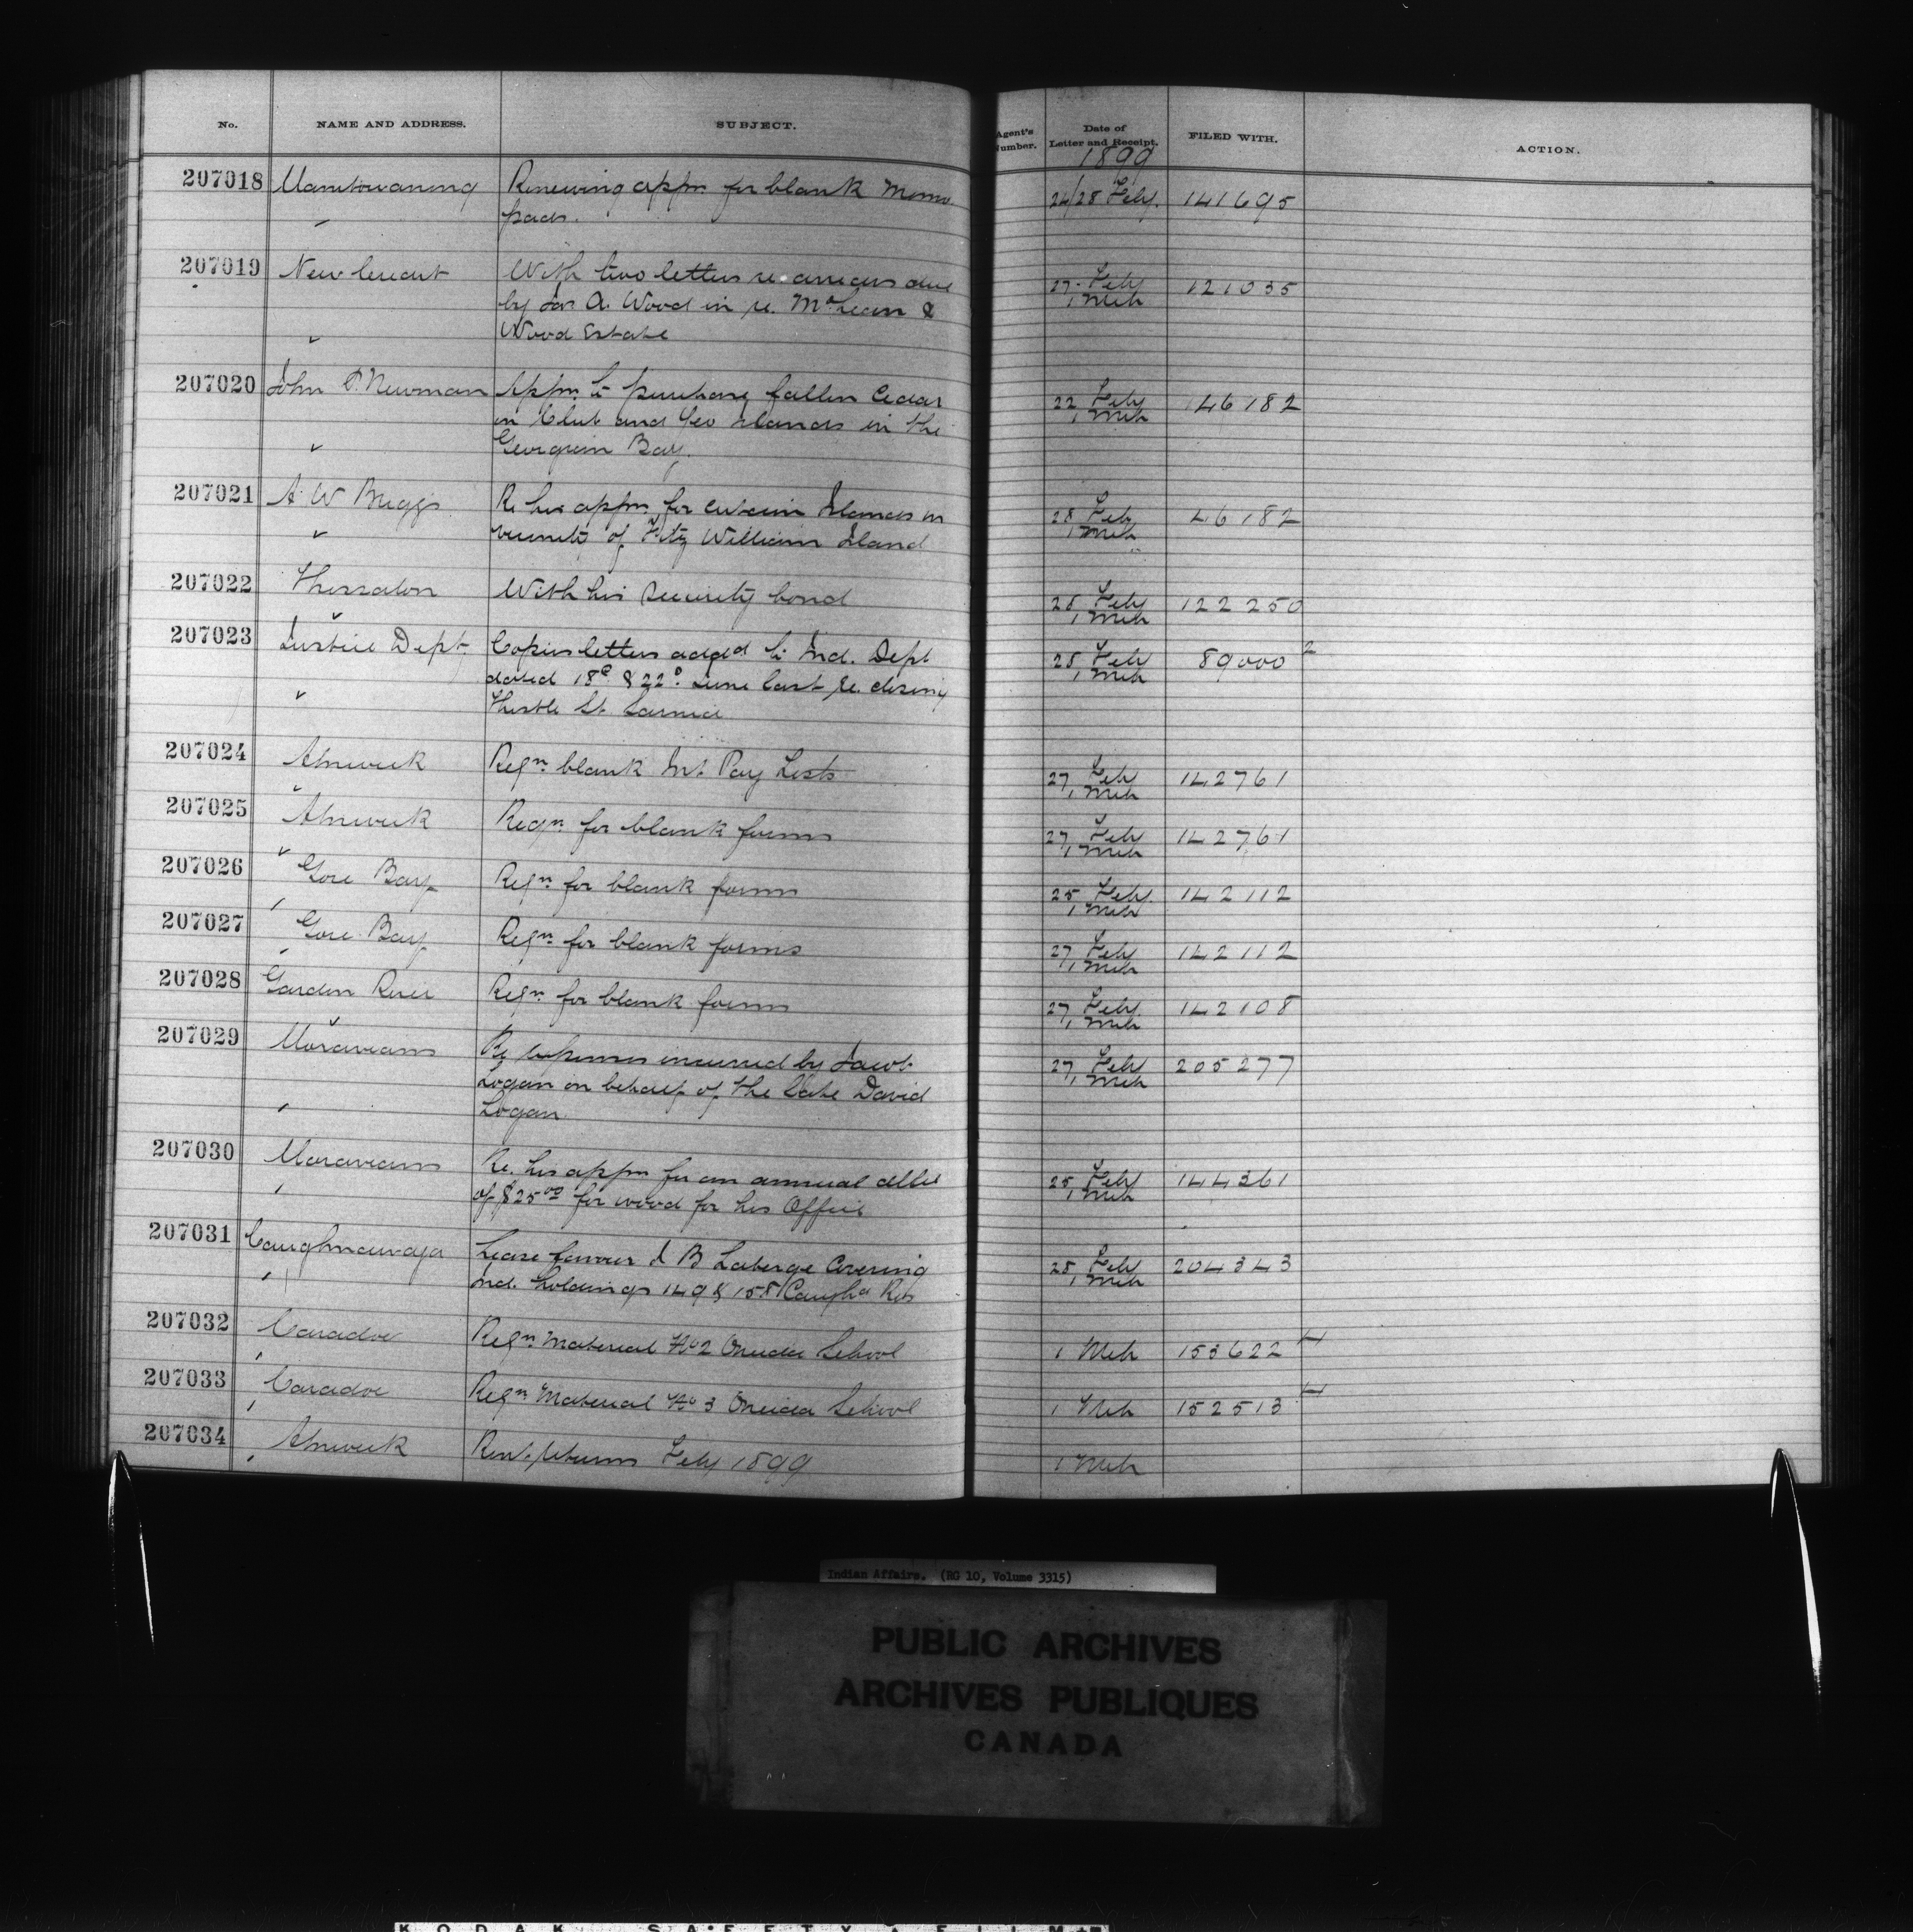 No. NAME AND ADDRESS. SUBJECT. Agent's Number. Date of Letter and Receipt. FILED WITH. ACTION.
1899
207018 Manitowaning Renewing appn. for blank Memo 24/28 Feby. 141695
pads.
207019 New Credit With two letters re. arrears due 27 Feby 121035
by Jas A. Wood in re. McLean & 1 Mch
Wood Estate
207020 John P. Newman Appn. to purchase fallen Cedar 22 Feby 146182
on Club and Geo Islands in the 1 Mch
Georgian Bay.
207021 A. W. Briggs Re his appn. for certain Islands in 28 Feby 46182
vicinity of Fitz William Island 1 Mch
207022 Thessalon With his Security bond 28 Feby 122250
1 Mch
207023 Justice Dept. Copies letters addgd to Ind. Dept 28 Feby 89000 2
dated 18th & 22d. June last re. closing 1 Mch
Thistle St. Sarnia
207024 Alnwick Reqn. blank Int. Pay Lists 27 Feby 142761
1 Mch
207025 Alnwick Reqn. for blank forms 27 Feby 142761
1 Mch
207026 Gore Bay Reqn. for blank forms 25 Feby. 142112
1 Mch
207027 Gore Bay Reqn. for blank forms 27 Feby 142112
1 Mch
207028 Garden River Reqn. for blank forms 27 Feby. 142108
1 Mch
207029 Moravians Re expenses incurred by Jacob 27 Feby 205277
Logan on behalf of the late David 1 Mch
Logan.
207030 Moravians Re. his appn for an annual allce 25 Feby 144361
of $25.00 for wood for his Office 1 Mch
207031 Caughnawaga Lease favour J B Laberge Covering 28 Feby 204343
Ind. holdings 149 & 158 Caugha Res 1 Mch
207032 Caradoc Reqn Material No 2 Oneida School 1 Mch 153622 4
207033 Caradoc Reqn Material No 3 Oneida School 1 Mch 152513 4
207034 Alnwick Rent. returns Feby 1899 1 Mch
Indian Affairs. (RG 10, Volume 3315)
PUBLIC ARCHIVES
ARCHIVES PUBLIQUES
CANADA
KODAK SAFETY FILM